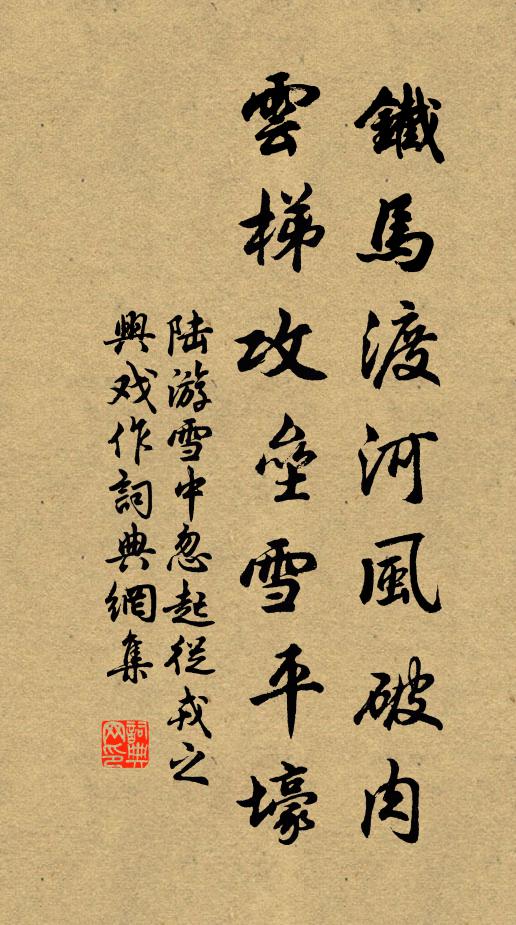 鐵馬渡河風破肉
雲梯攻壘雪平壕
陆游雪中忽起從戎之
興戏作詞典網集
詞典
网印